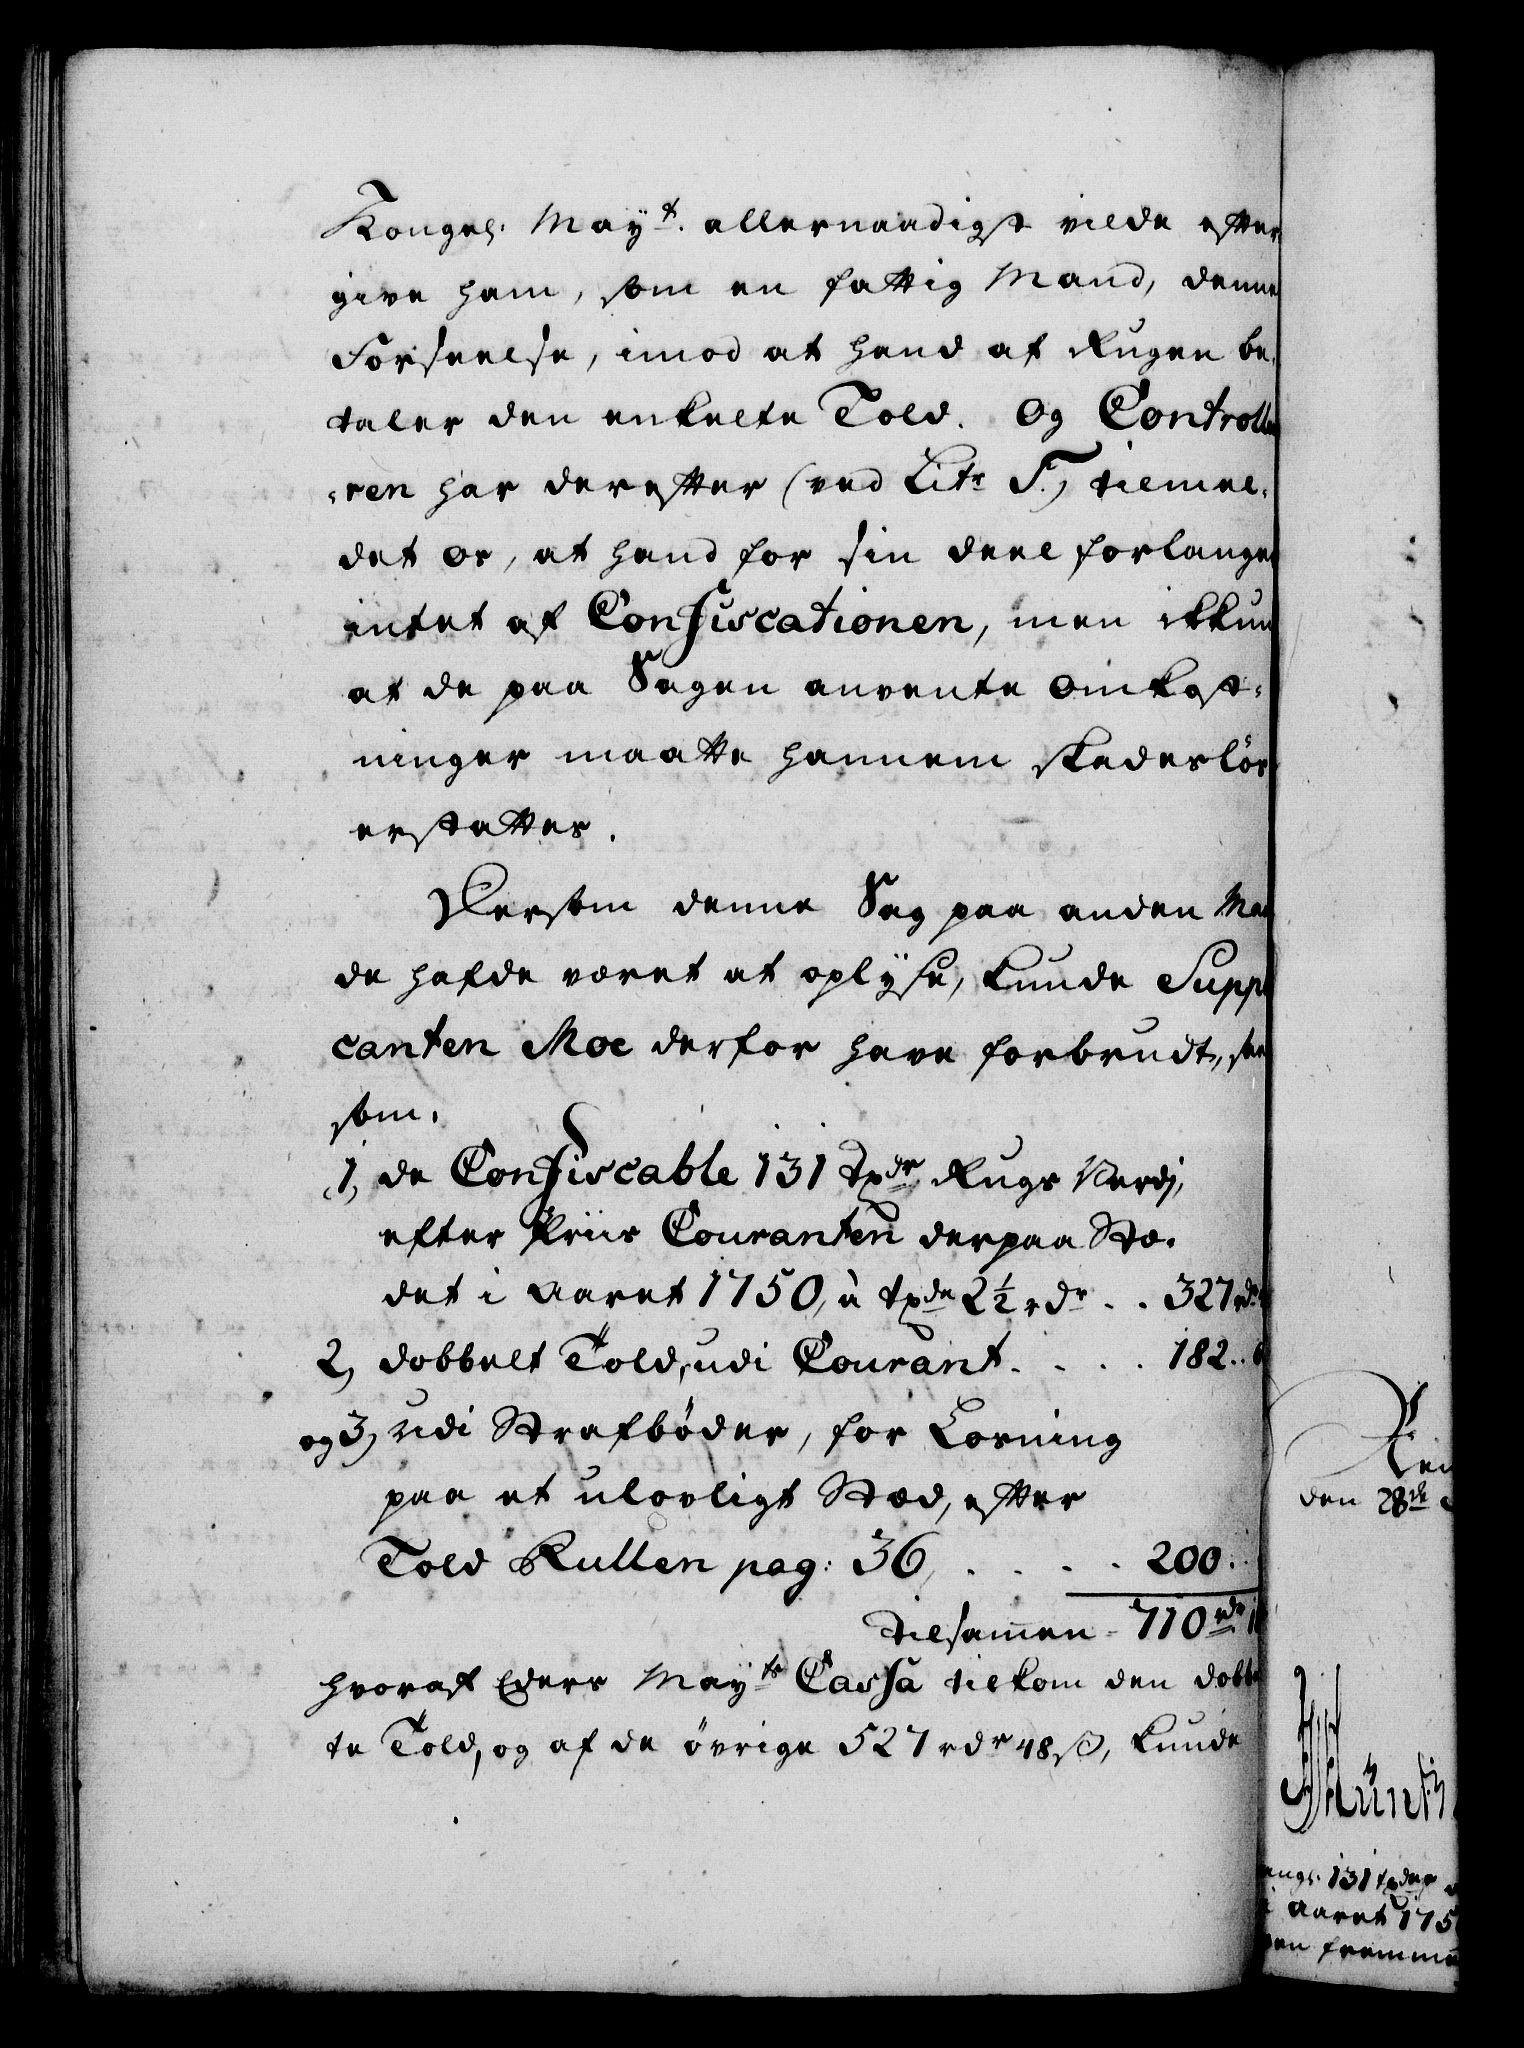 Kongel. Mayt. allernaadigst vilde efter
give ham, som en fattig Mand, denne
Forseelse, imod at hand af Rugen be-
taler den enkelte Told. Og Controlleu
-ren har derefter (ved Litr F.) tilmel-
det os, at hand for sin deel forlanger
intet af Confiscationen, men ikkun
at de paa Sagen anvente Omkost-
ninger maatte hannem skadeslös
erstattes.
Dersom denne Sag paa anden Maa
de hafde været at oplÿse, kunde Suppli
canten Moe derfor have forbrudt, saa
som.
1, de Confiscable 131 Tpdr Rugs Verdj,
efter Priis Couranten derpaa Stæ-
det i Aaret 1750, à tpde 2½ rdr . . 327 rdr
2, dobbelt Told, udi Courant . . . . 182..
og 3, udi Strafböder, for Losning
paa et ulovligt Stæd, efter
Told Rullen pag: 36, . . . . 200..
tilsamen - 710 rdr
hvoraf Eders Mayts Cassa tilkom den dobbel
te Told, og af de övrige 527 rdr 48 ß, kunde
den 28de
131 tpder
i Aaret 175
fremme